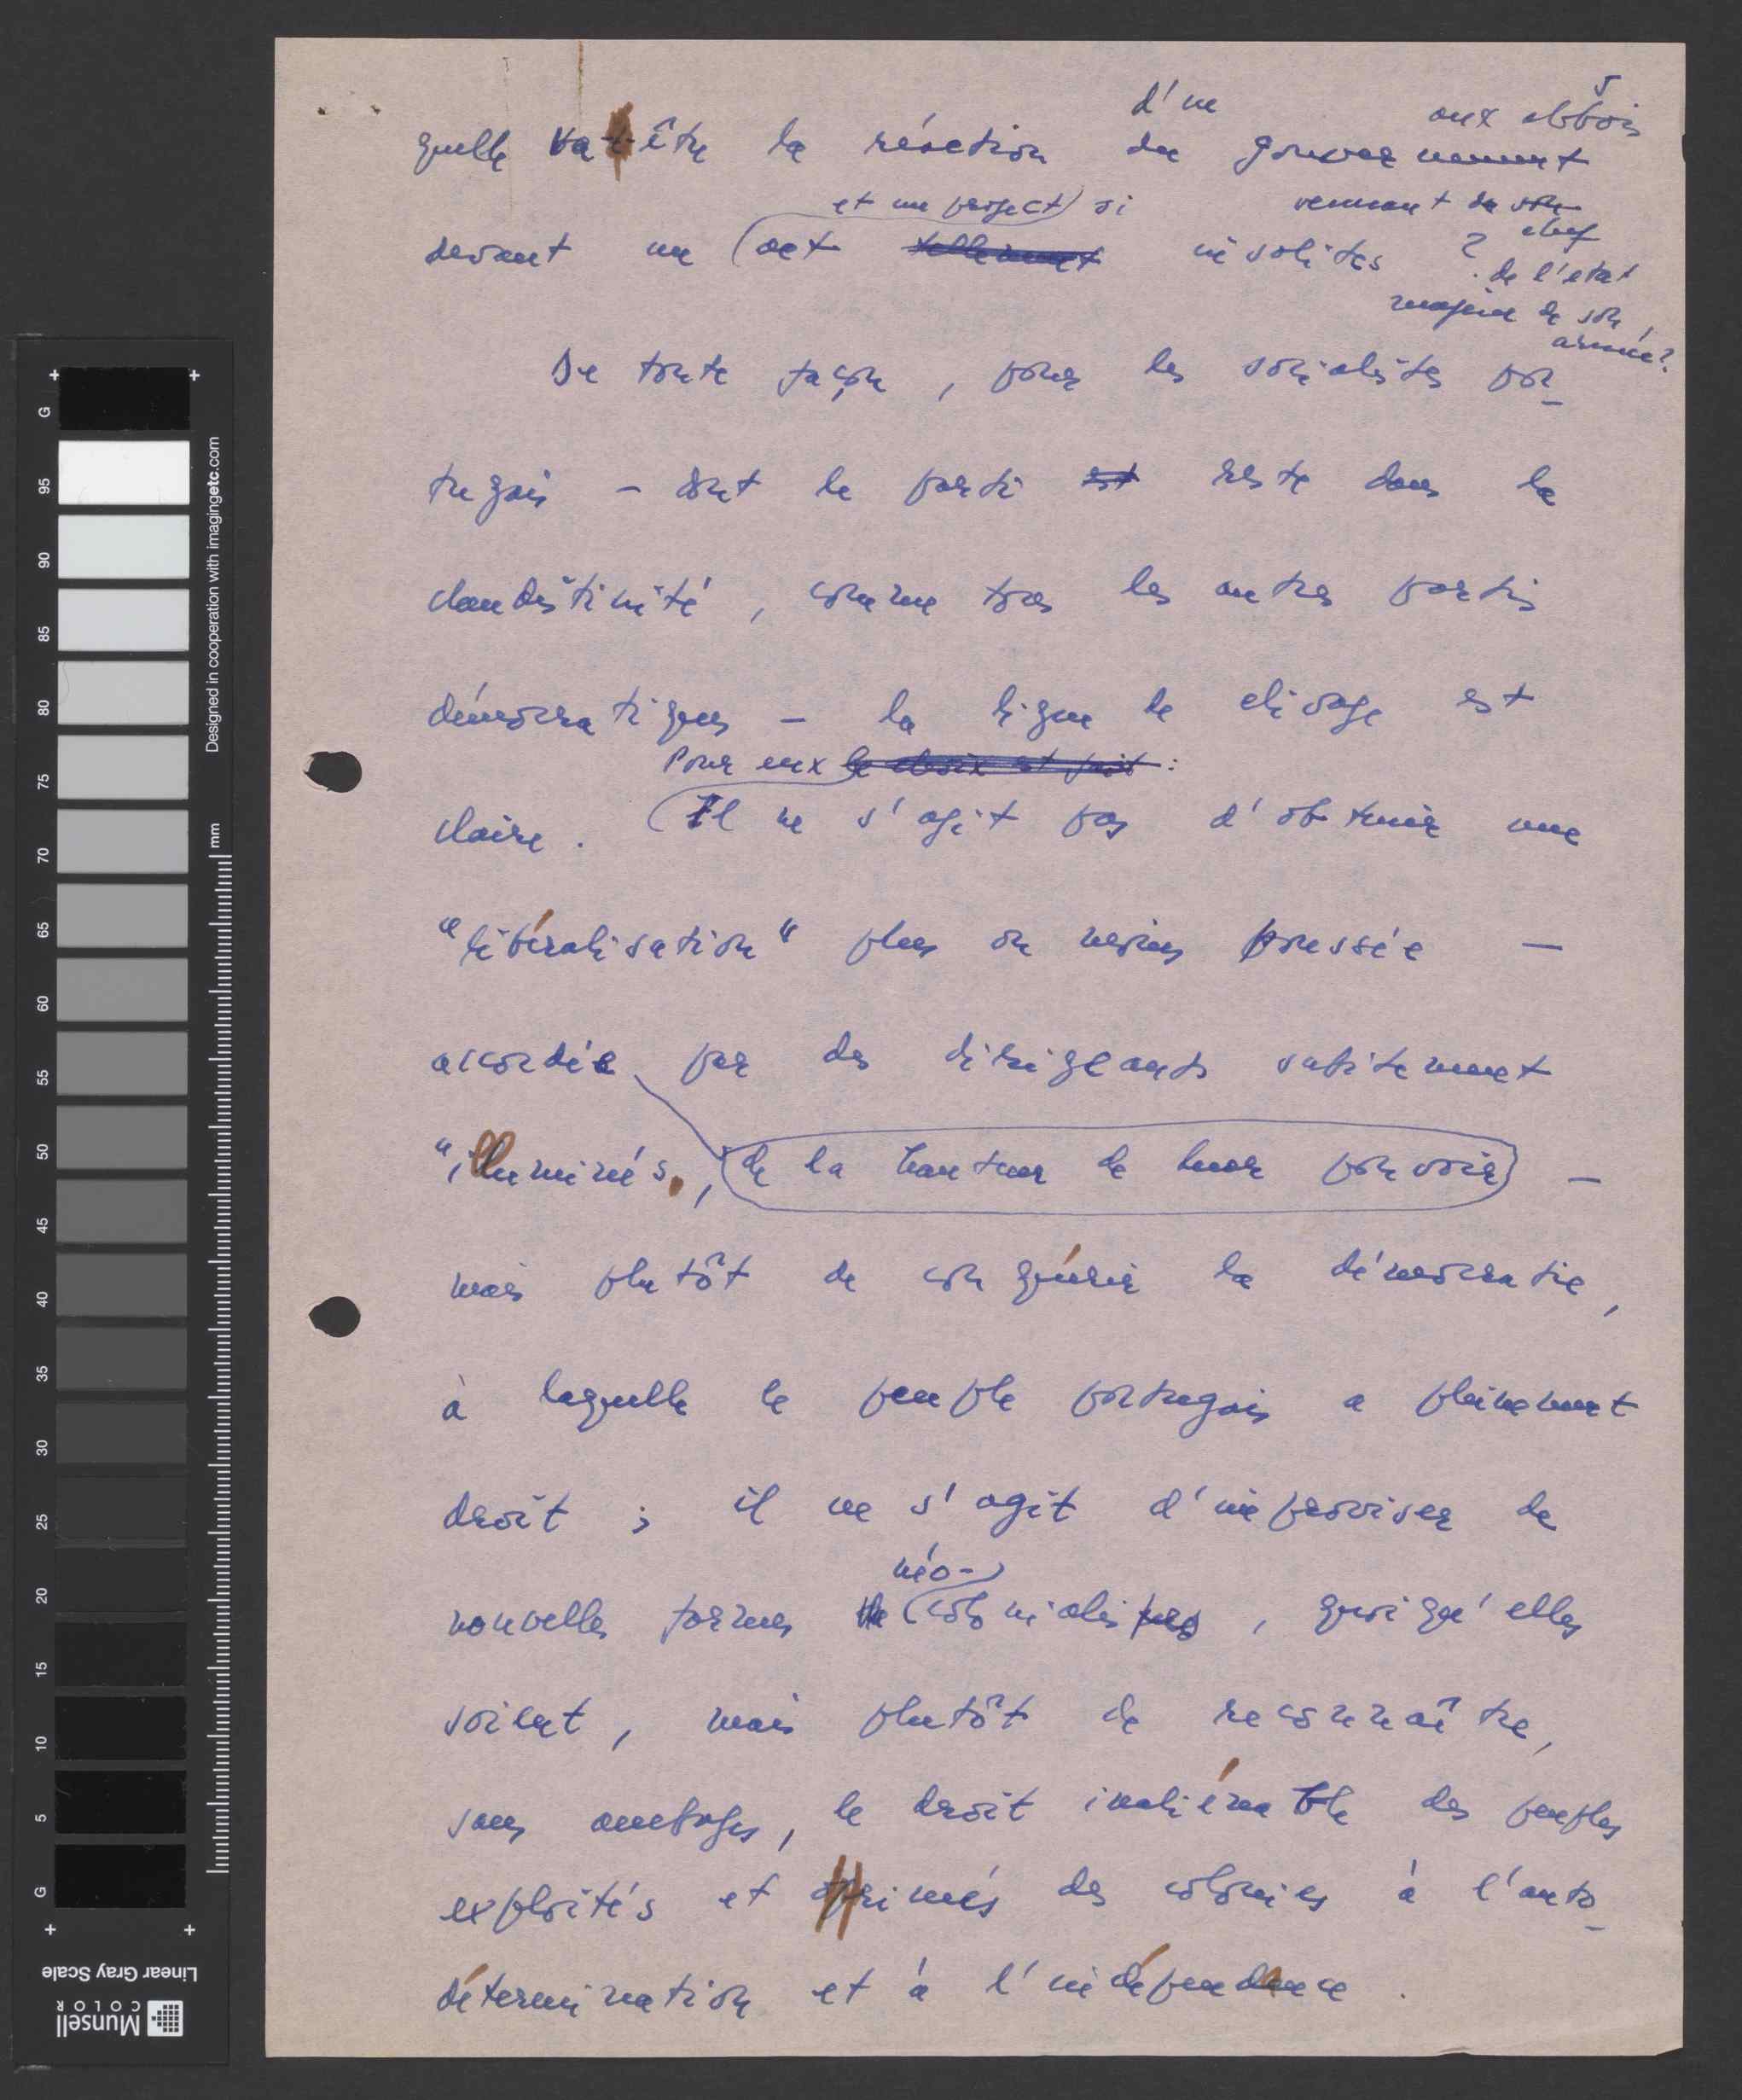 5
d'un aux abbois
quelle va-t-être la réaction du gouvernement
et un project si vennant du son
devant un act tellement insolites ? chef
de l'etat
majeur de son
armée?
De toute façon, pour les socialistes por-
tugais - dont le parti est reste dans la
clandestinité, comme tous les autres partis
démocratiques - la ligne de clivage est
Pour eux le choix est fait :
claire. Il ne s'agit pas d'obtenir une
"libéralisation" plus ou moins poussée -
accordée par des dirigeants subitement
"illuminés, de la hauteur de leur pouvoir -
mais plutôt de conquérir la démocratie,
à laquelle le peuple portugais a pleinement
droit ; il ne s'agit d'improviser de
néo-
nouvelles formes de colonialismes, quoiqu'elles
soient, mais plutôt de reconnaître,
sans ambages, le droit inaliénable des peuples
exploités et opprimés des colonies à l'auto-
détermination et à l'indépendance.
G
95
90
85
80
75
70
65
60
55
50
45
40
35
30
25
20
15
10
5
G
mm
Designed in cooperation with imagingetc.com
Linear Gray Scale
Munsell
COLOR